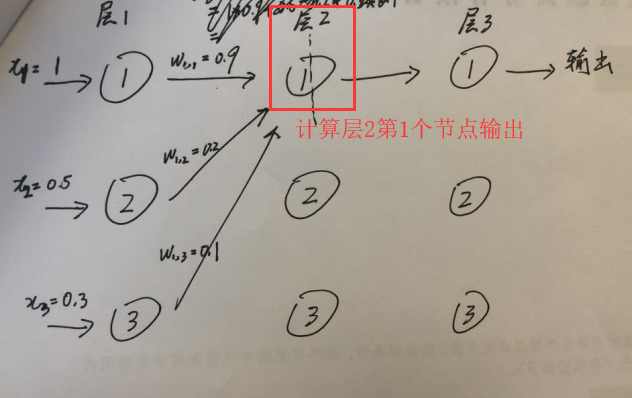 层1 层2 层3
x₁=1 ① w₁,₁=0.9 ① ① 输出
计算层2第1个节点输出
x₂=0.5 ② w₁,₂=0.2 ② ②
w₁,₃=0.1
x₃=0.3 ③ ③ ③